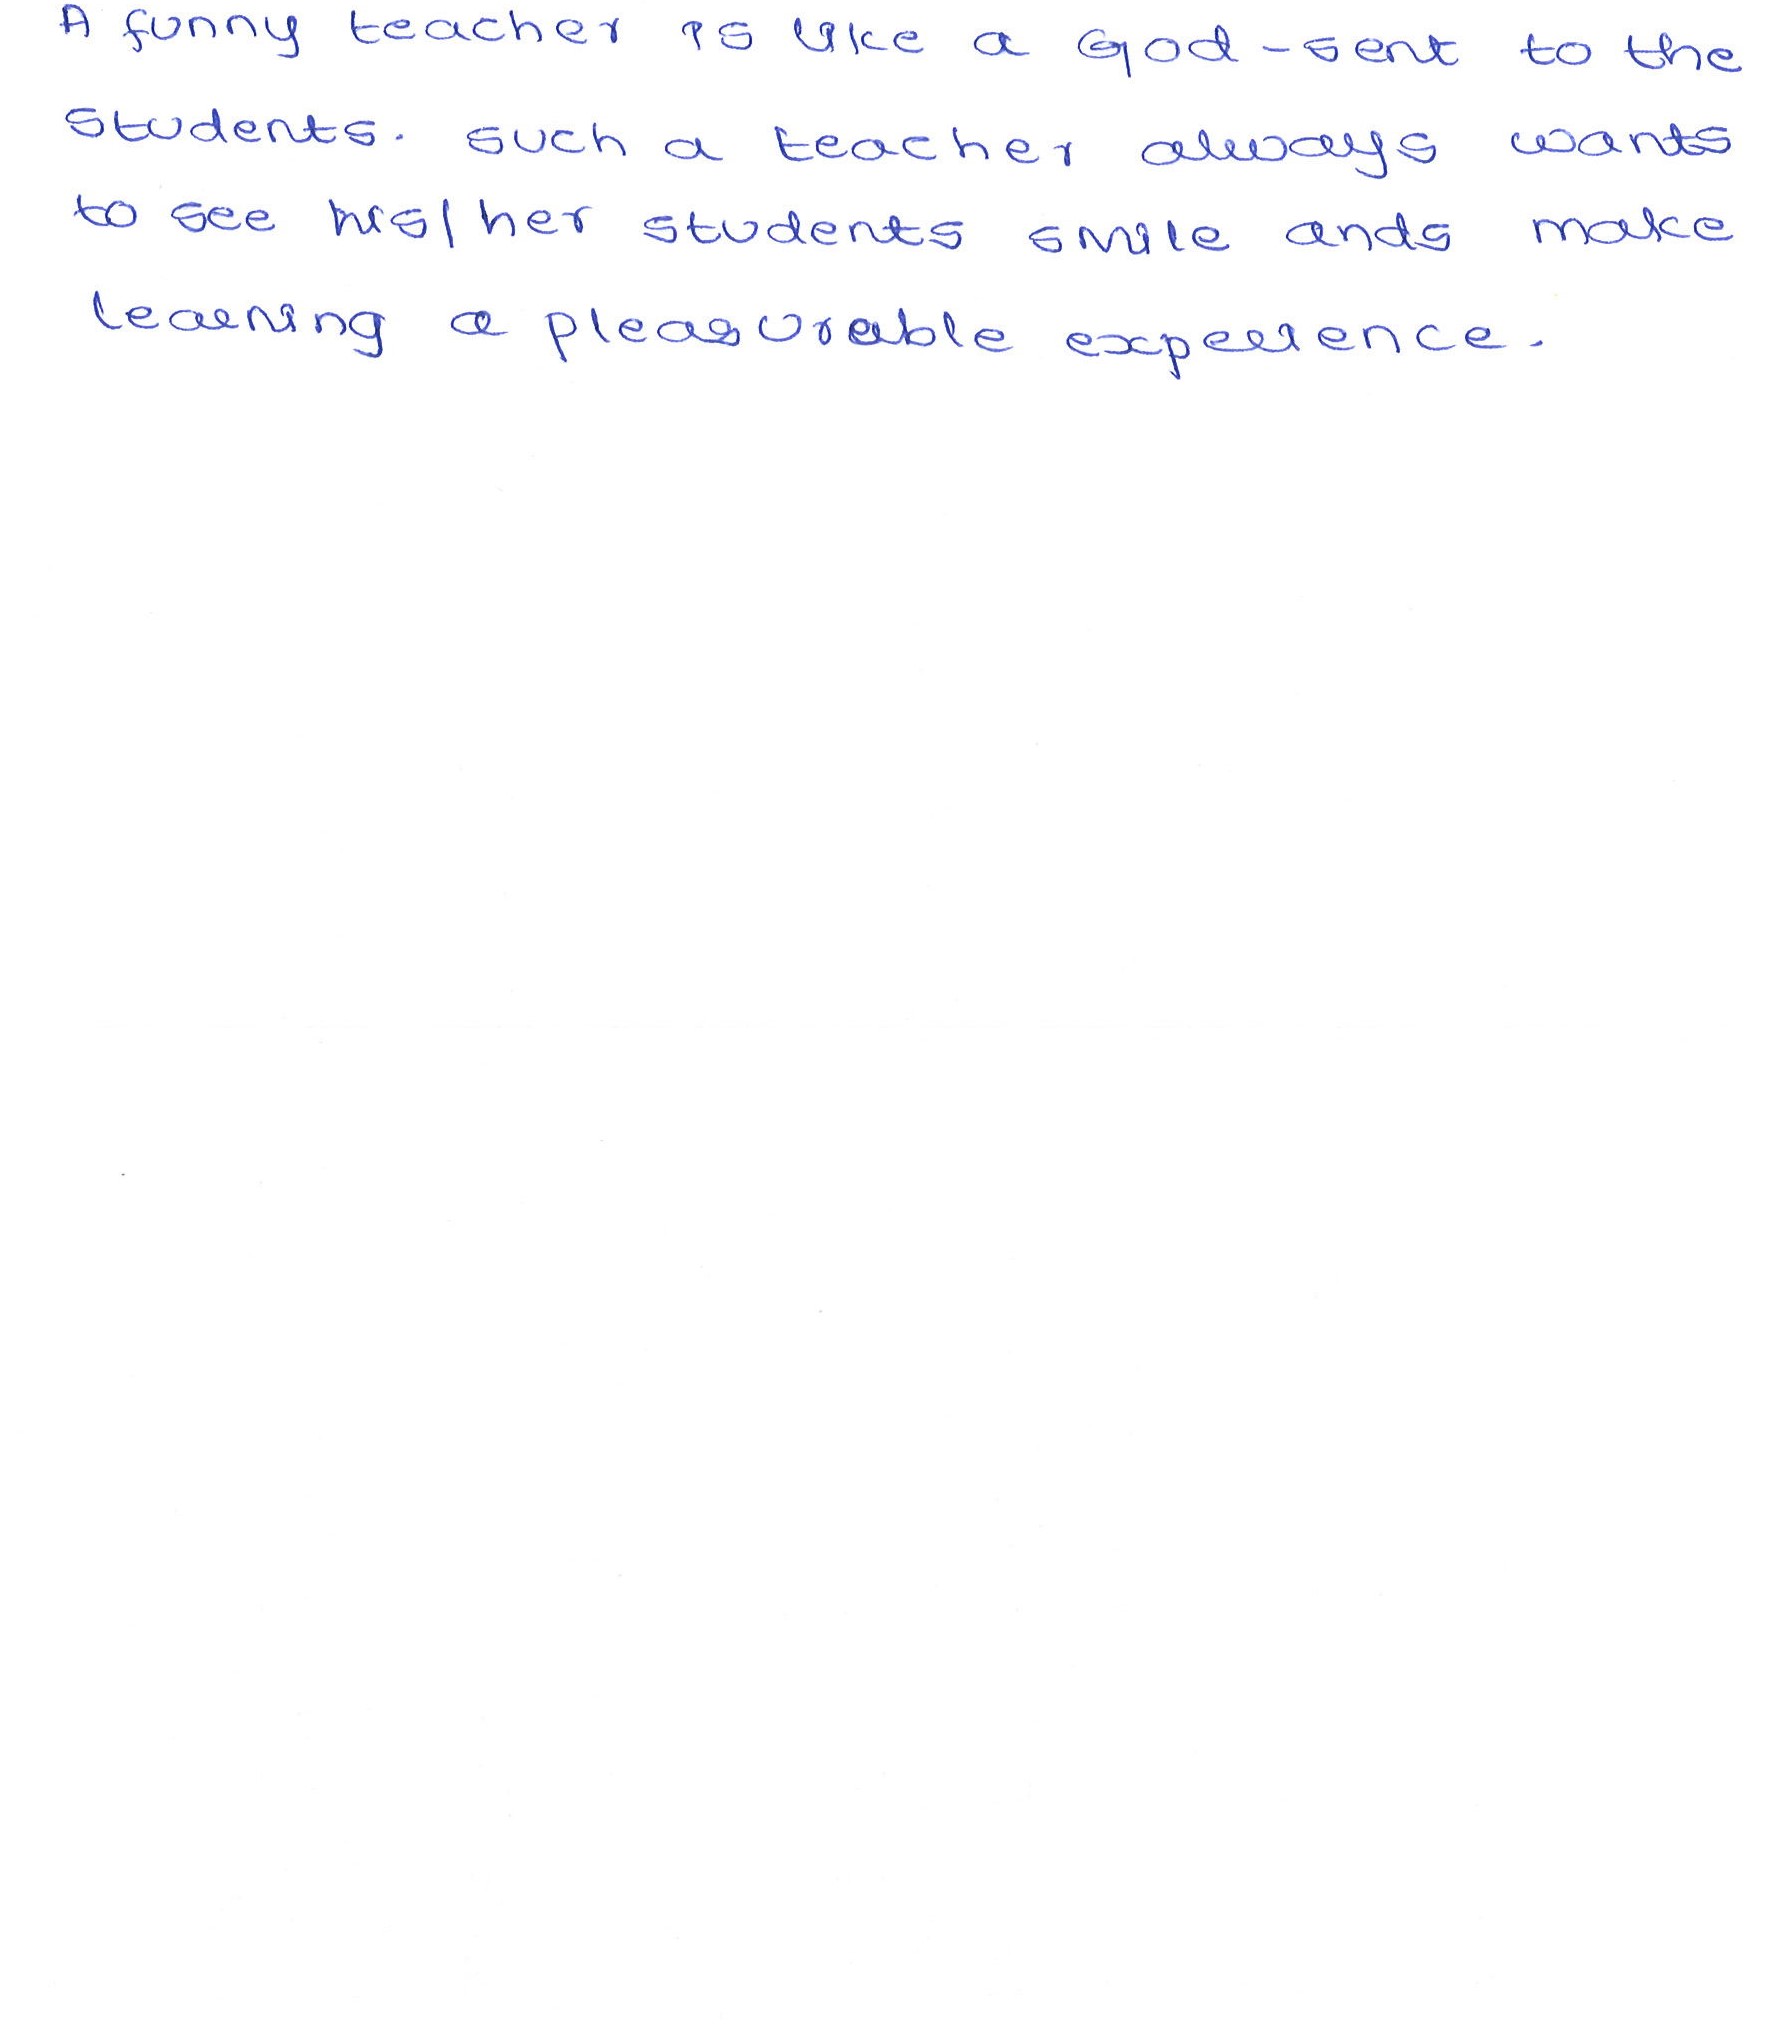 A funny teacher is like a God-sent to the
students. such a teacher always wants
to see his/her students smile ands make
learning a pleasurable experience.